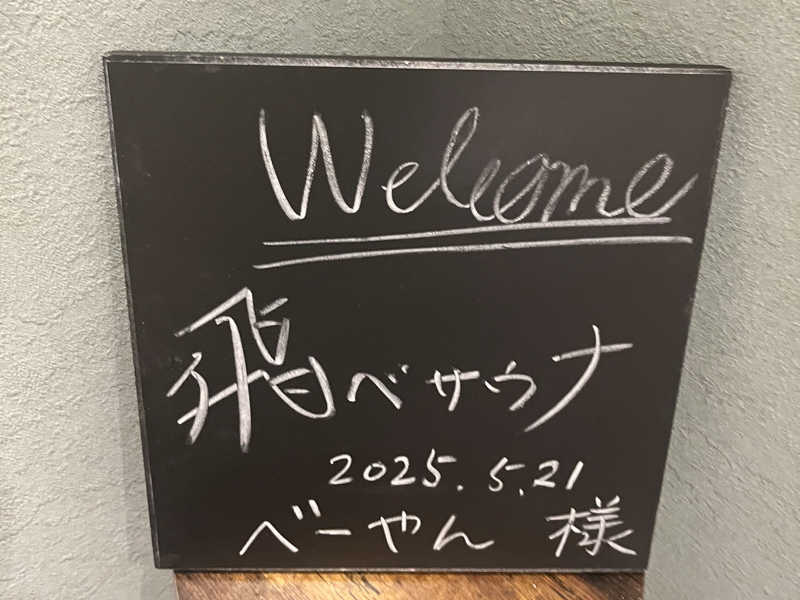 Welcome
飛べサウナ
2025.5.21
べーやん 様